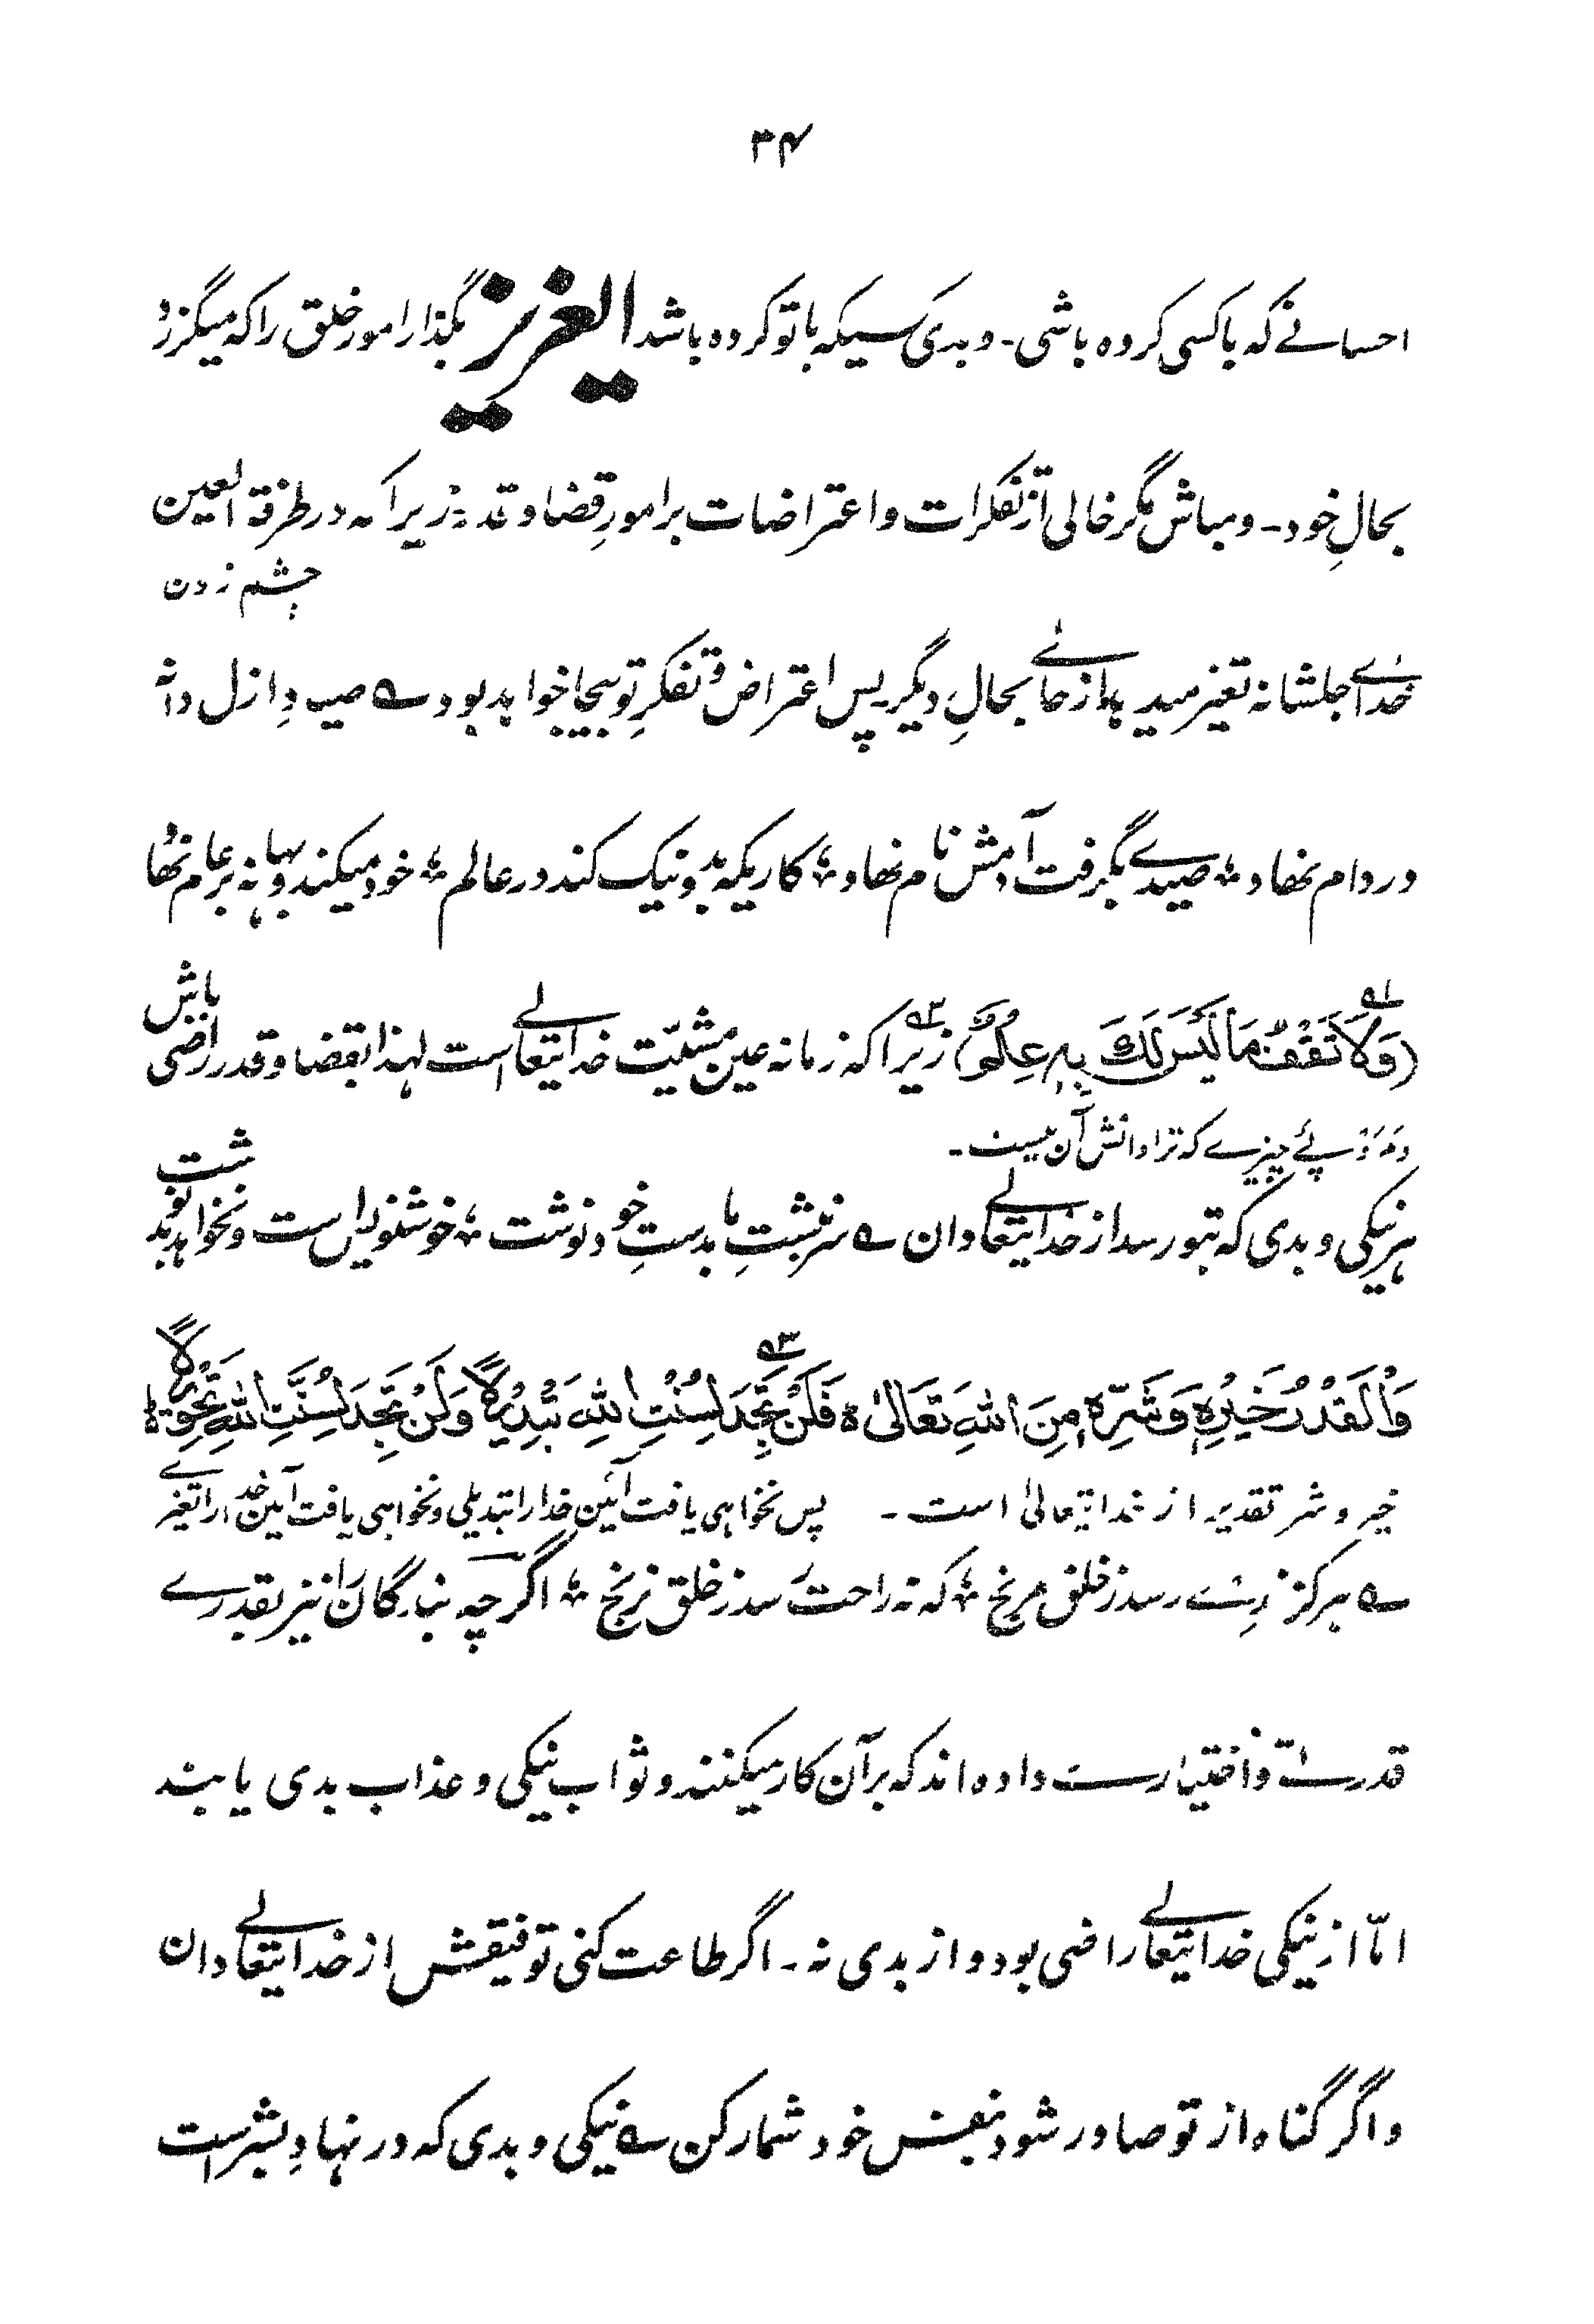 ۳۴
احسانے که باکسی کرده باشی۔ و بدی کسیکه باتو کرده باشد ایعزیز بگذار امور خلق را که میگزرد
بحالِ خود۔ و مباش مگر خالی از تفکرات و اعتراضات بر امورِ قضا و قدر زیرا که در طرفة العین
چشم زدن
خدای جلشانه تغیر میدهد از حالے بحالِ دیگر پس اعتراض و تفکرِ تو بیجا خواهد بود ؎ صیادِ ازل دانه
در دام نهاد ؛ صیدے بگرفت آدمش نام نهاد ؛ کاریکه بد و نیک کند در عالم ؛ خود میکند و بهانه بر عام نهاد
(وَلَا تَقْفُ مَا لَيْسَ لَكَ بِهٖ عِلْمٌ) زیرا که زمانه عین مشیّت خدایتعالے است لهذا بقضا و قدر راضی باش
و مرو پئے چیزے که ترا دانش آن نیست۔
هر نیکی و بدی که بتو رسد از خدایتعالے دان ؎ سرنبشتِ ما بدستِ خود نوشت ؛ خوشنویس است و نخواهد بد نوشت
وَالْقَدْرُ خَيْرِهٖ وَشَرِّهٖ مِنَ اللهِ تَعَالىٰ ۵ فَلَنْ تَجِدَ لِسُنَّتِ اللهِ تَبْدِيْلًا وَلَنْ تَجِدَ لِسُنَّتِ اللهِ تَحْوِيْلًا ۵
خیر و شر تقدیر از خدایتعالیٰ است۔ پس نخواهی یافت آئین خدا را تبدیلی و نخواهی یافت آیین خدا را تغیرے
؎ گزندت رسد ز خلق مرنج ؛ که نه راحت رسد ز خلق نرنج ؛ اگرچه بندگان را نیز بقدرے
قدرت و اختیار ست داده اند که بر آن کار میکنند و ثواب نیکی و عذاب بدی یابند
امّا از نیکی خدایتعالے راضی بود و از بدی نه۔ اگر طاعت کنی توفیقش از خدایتعالے دان
و اگر گناه از تو صادر شود بنفس خود شمار کن ؎ نیکی و بدی که در نهادِ بشر است